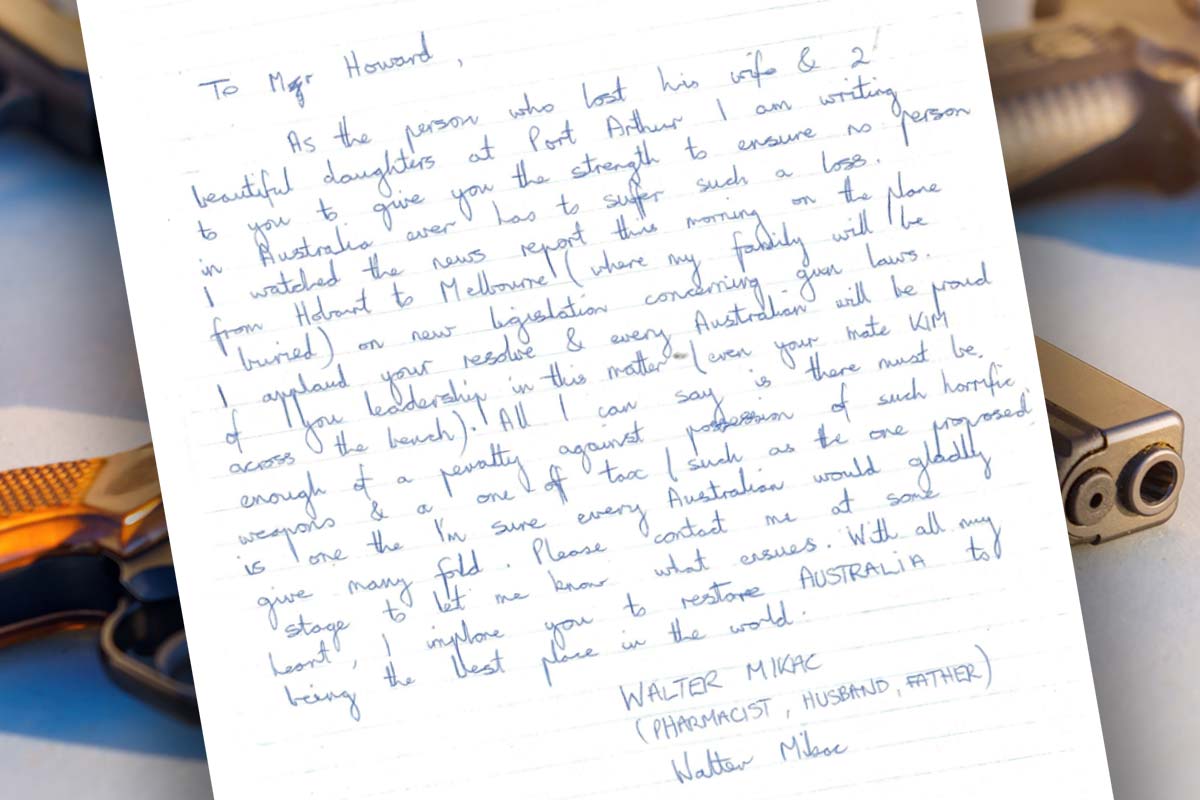 To Mr Howard,
As the person who lost his wife & 2
beautiful daughters at Port Arthur I am writing
to you to give you the strength to ensure no person
in Australia ever has to suffer such a loss.
I watched the news report this morning on the plane
from Hobart to Melbourne (where my family will be
buried) on new legislation concerning gun laws.
I applaud your resolve & every Australian will be proud
of you leadership in this matter (even your mate KIM
across the bench). All I can say is there must be
enough of a penalty against possession of such horrific
weapons & a one off tax (such as the one proposed
is one the I'm sure every Australian would gladly
give many fold. Please contact me at some
stage to let me know what ensues. With all my
heart, I implore you to restore AUSTRALIA to
being the best place in the world.
WALTER MIKAC
(PHARMACIST, HUSBAND, FATHER)
Walter Mikac